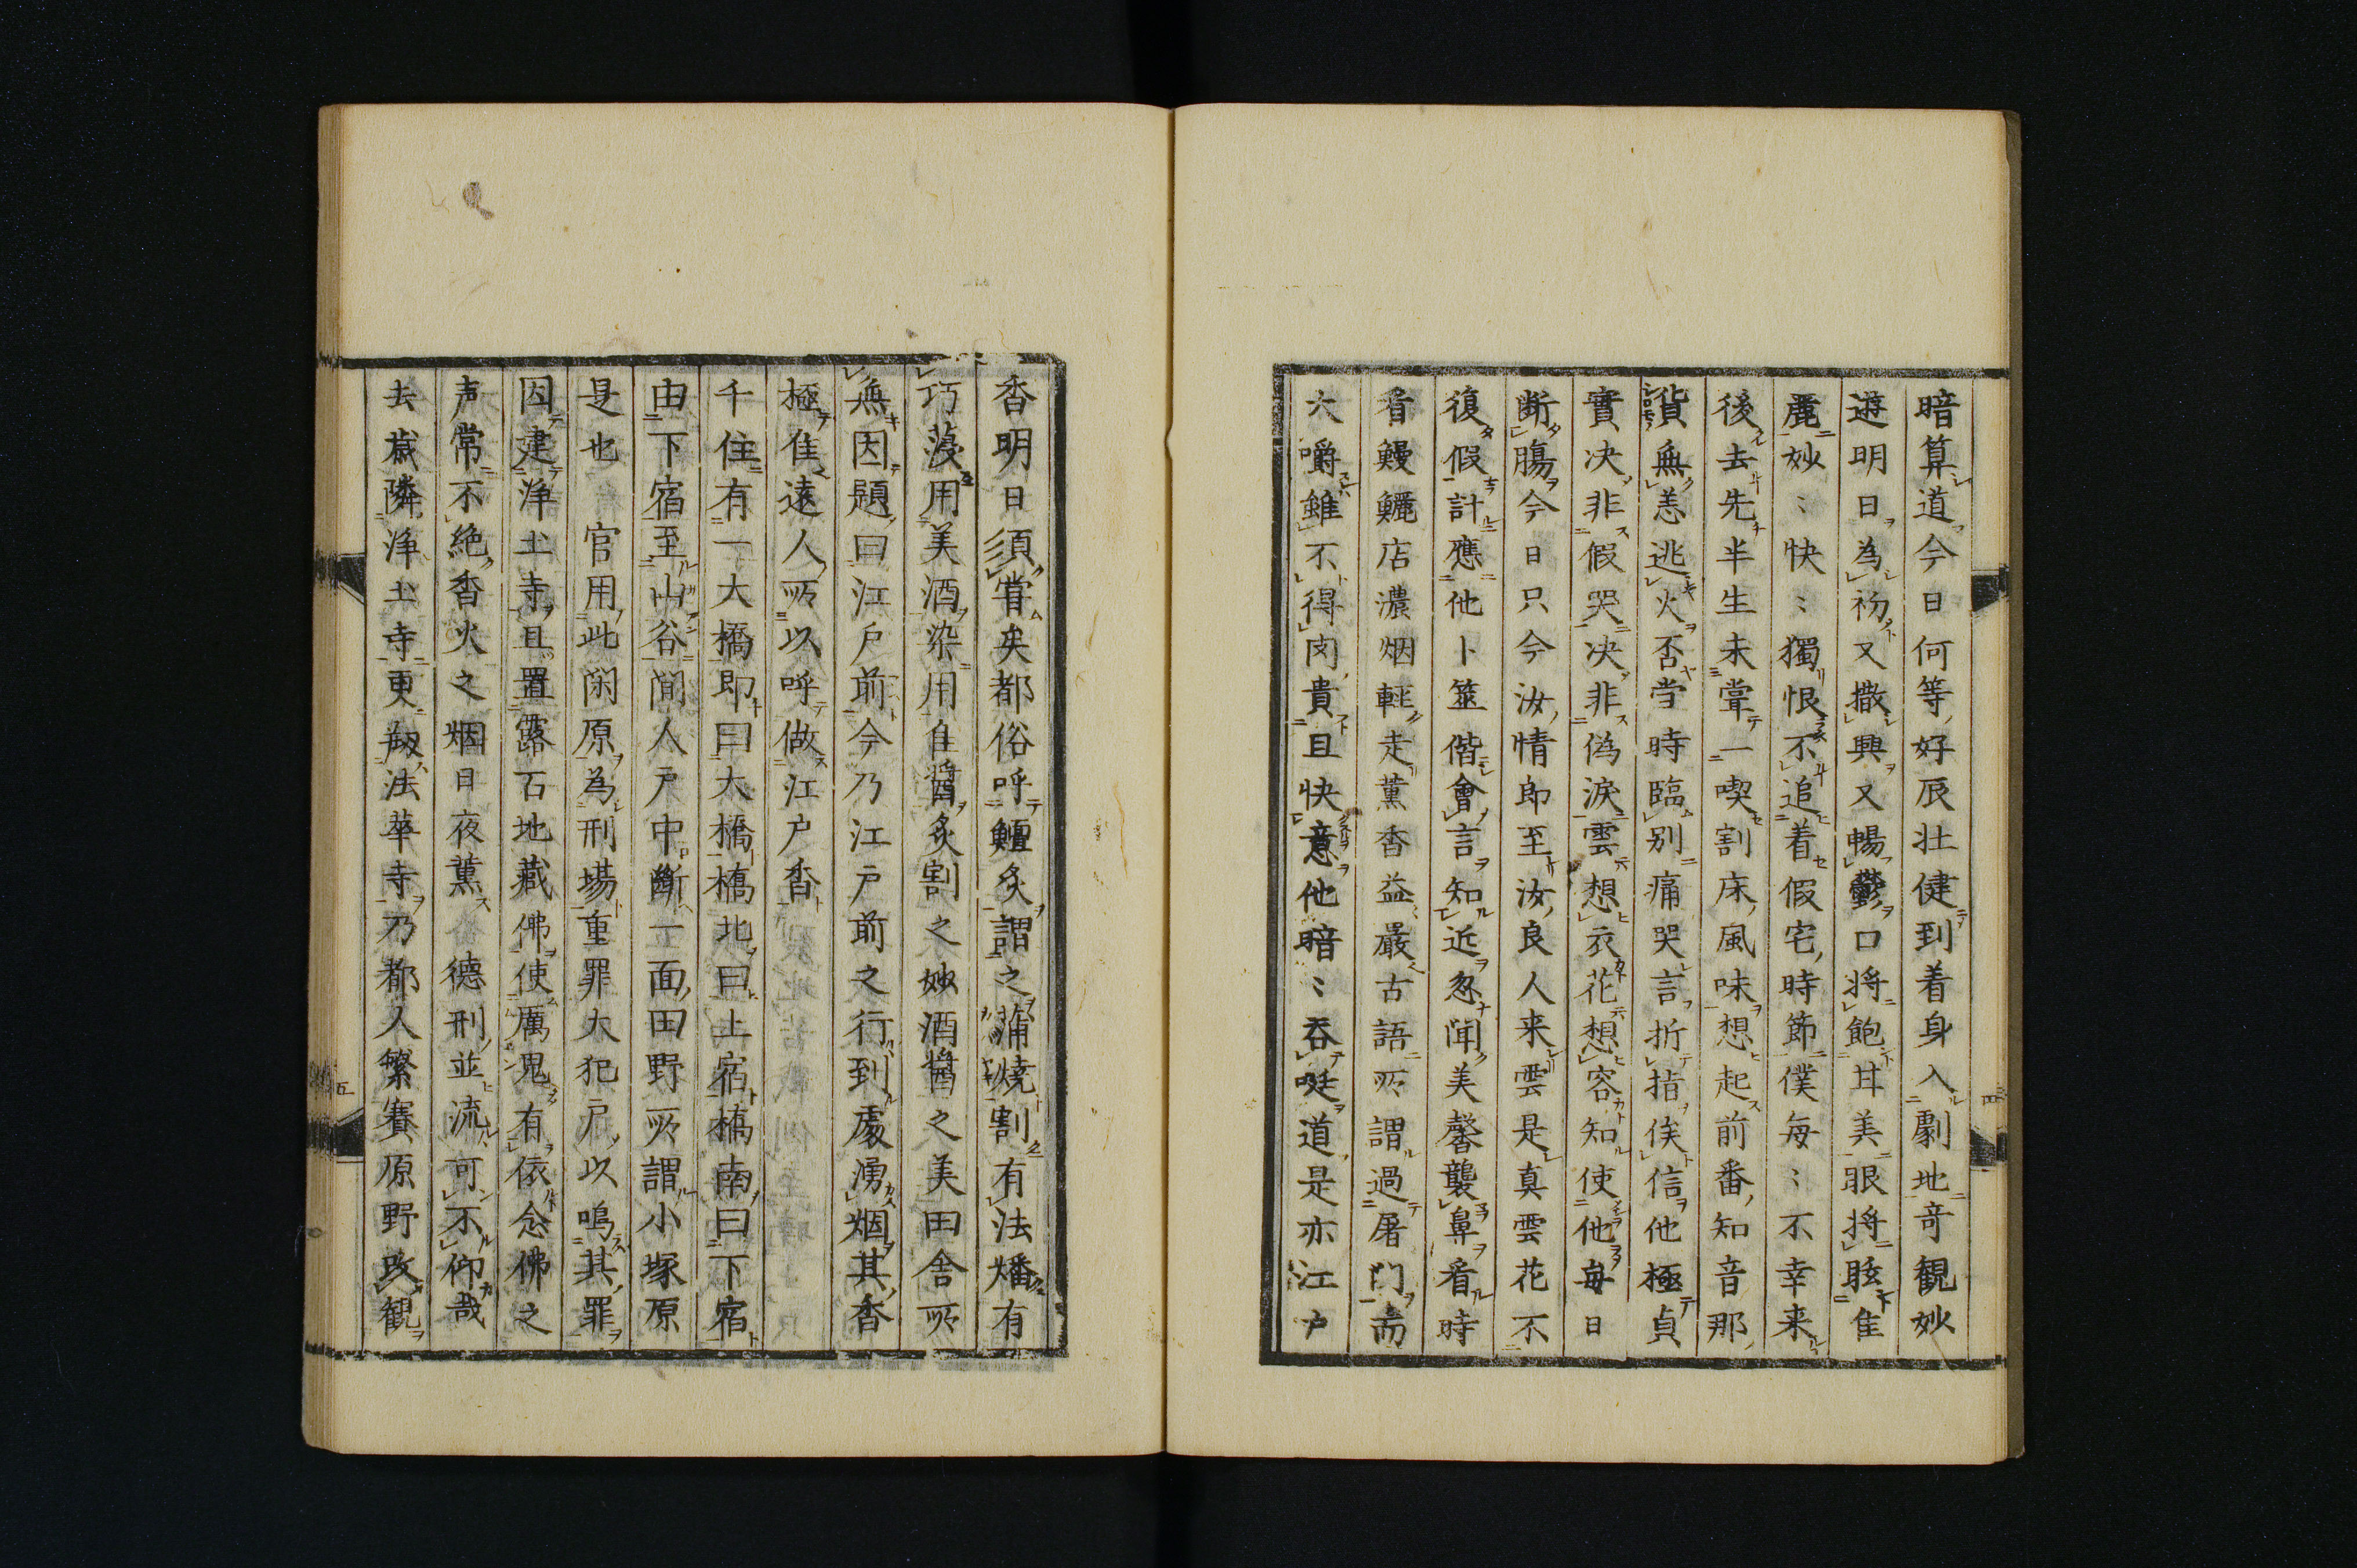 暗算道今日何等好辰壮健到着身入劇地竒観妙
遊明日為初又撒興又暢鬱口将飽甘美眼将眩隹
麗妙〻快〻獨恨不追着假宅時節僕毎〻不幸来
後去先半生未甞一喫割床風味想起前番知音那
貨無恙逃火否當時臨别痛哭言折指俟信他極貞
實决非假哭决非偽淚雲想衣花想容知使他毎日
断膓今日只今汝情郎至汝良人来雲是真雲花不
復假計應他卜筮偕會言知近忽聞美馨襲鼻看時
看鰻鱺店濃烟軽走薫香益嚴古語所謂過屠門而
大嚼雖不得肉貴且快意他暗〻吞唌道是亦江戸
香明日須甞矣都俗呼鱣炙謂之蒲燒割有法燔有
巧蔆用美酒染用自醤炙割之妙酒醤之美田舎所
無因題曰江戸前今乃江戸前之行到處湧烟其香
極隹遠人所以呼做江戸香
千住有一大橋即曰大橋橋北曰上宿橋南曰下宿
由下宿至山谷間人戸中斷一面田野所謂小塚原
是也　官用此閑原為刑場重罪大犯戸以鳴其罪
因建浄土寺且置露石地藏佛使厲鬼有依念佛之
声常不絶香火之烟日夜薫　德刑並流可不仰哉
去歳隣浄土寺更剏法華寺乃都人繁賽原野改観
四
五